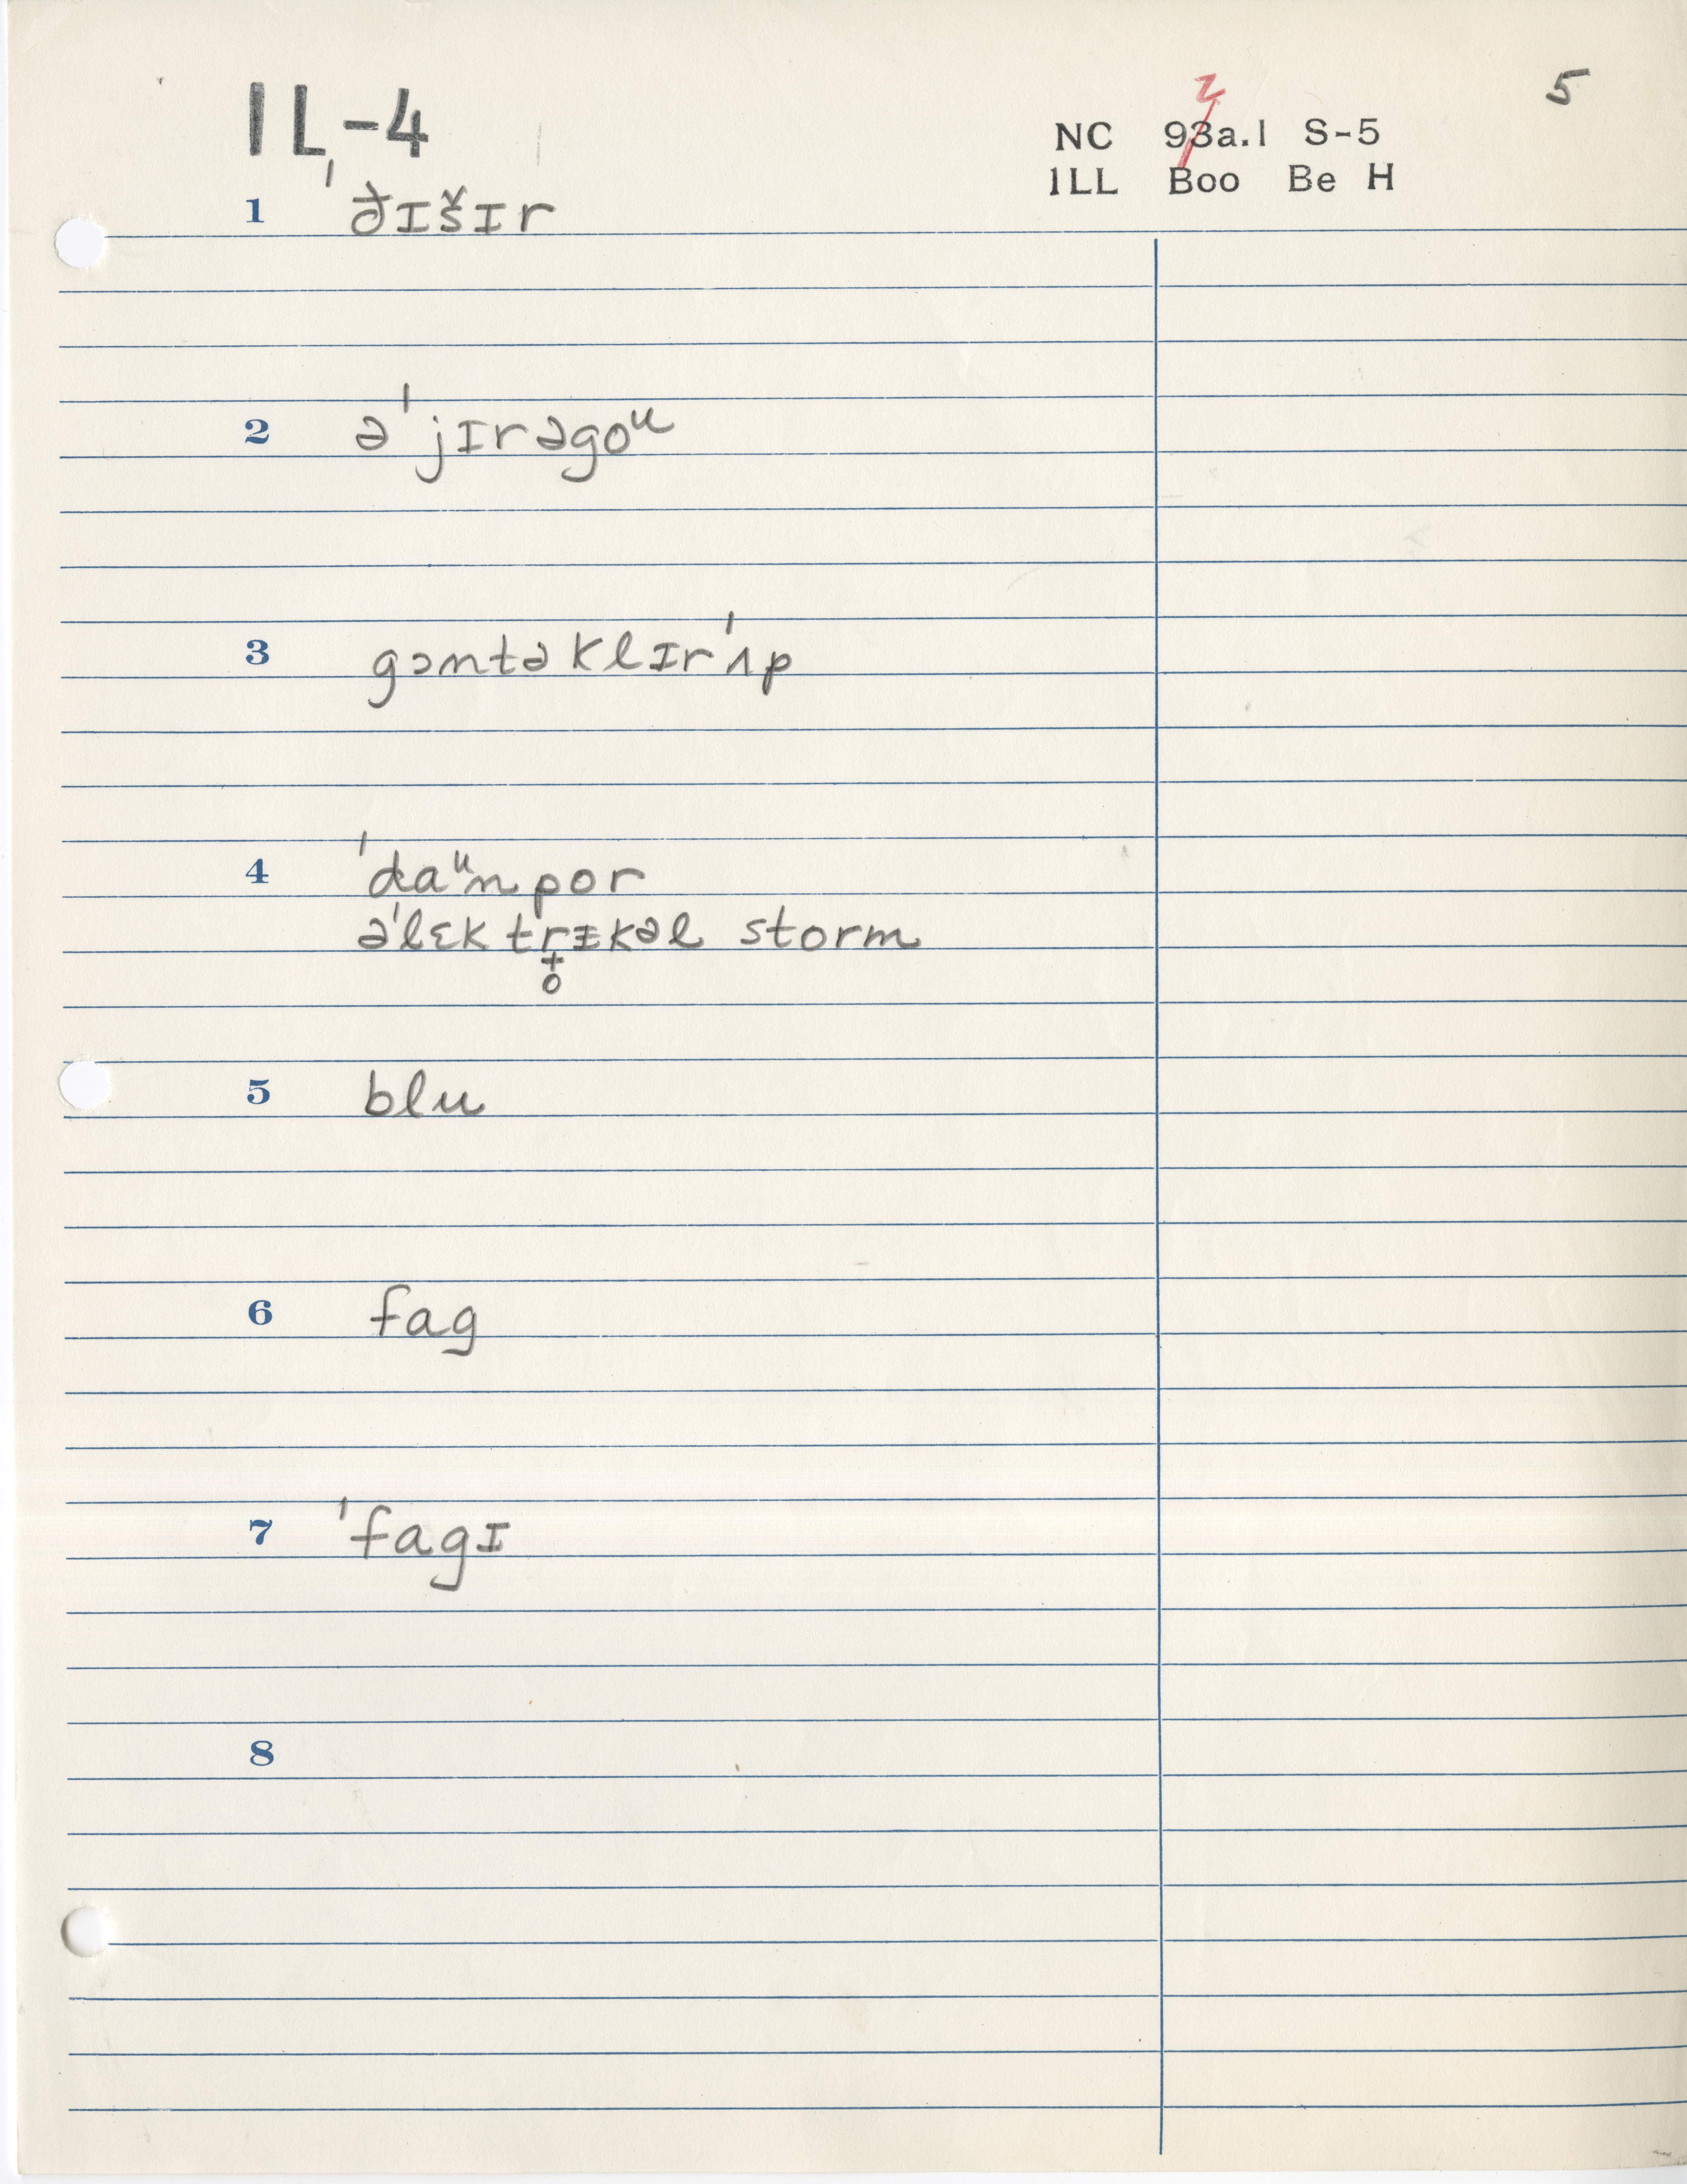 IL-4
5
2
NC 93a.1 S-5
ILL Boo Be H
1 ˈðɪšɪr
2 əˈjɪrəgoᵘ
3 gɔntəklɪrˈʌp
4 ˈdaᵘnpor
əˈlɛktrɪkəl storm
5 blu
6 fag
7 ˈfagɪ
8